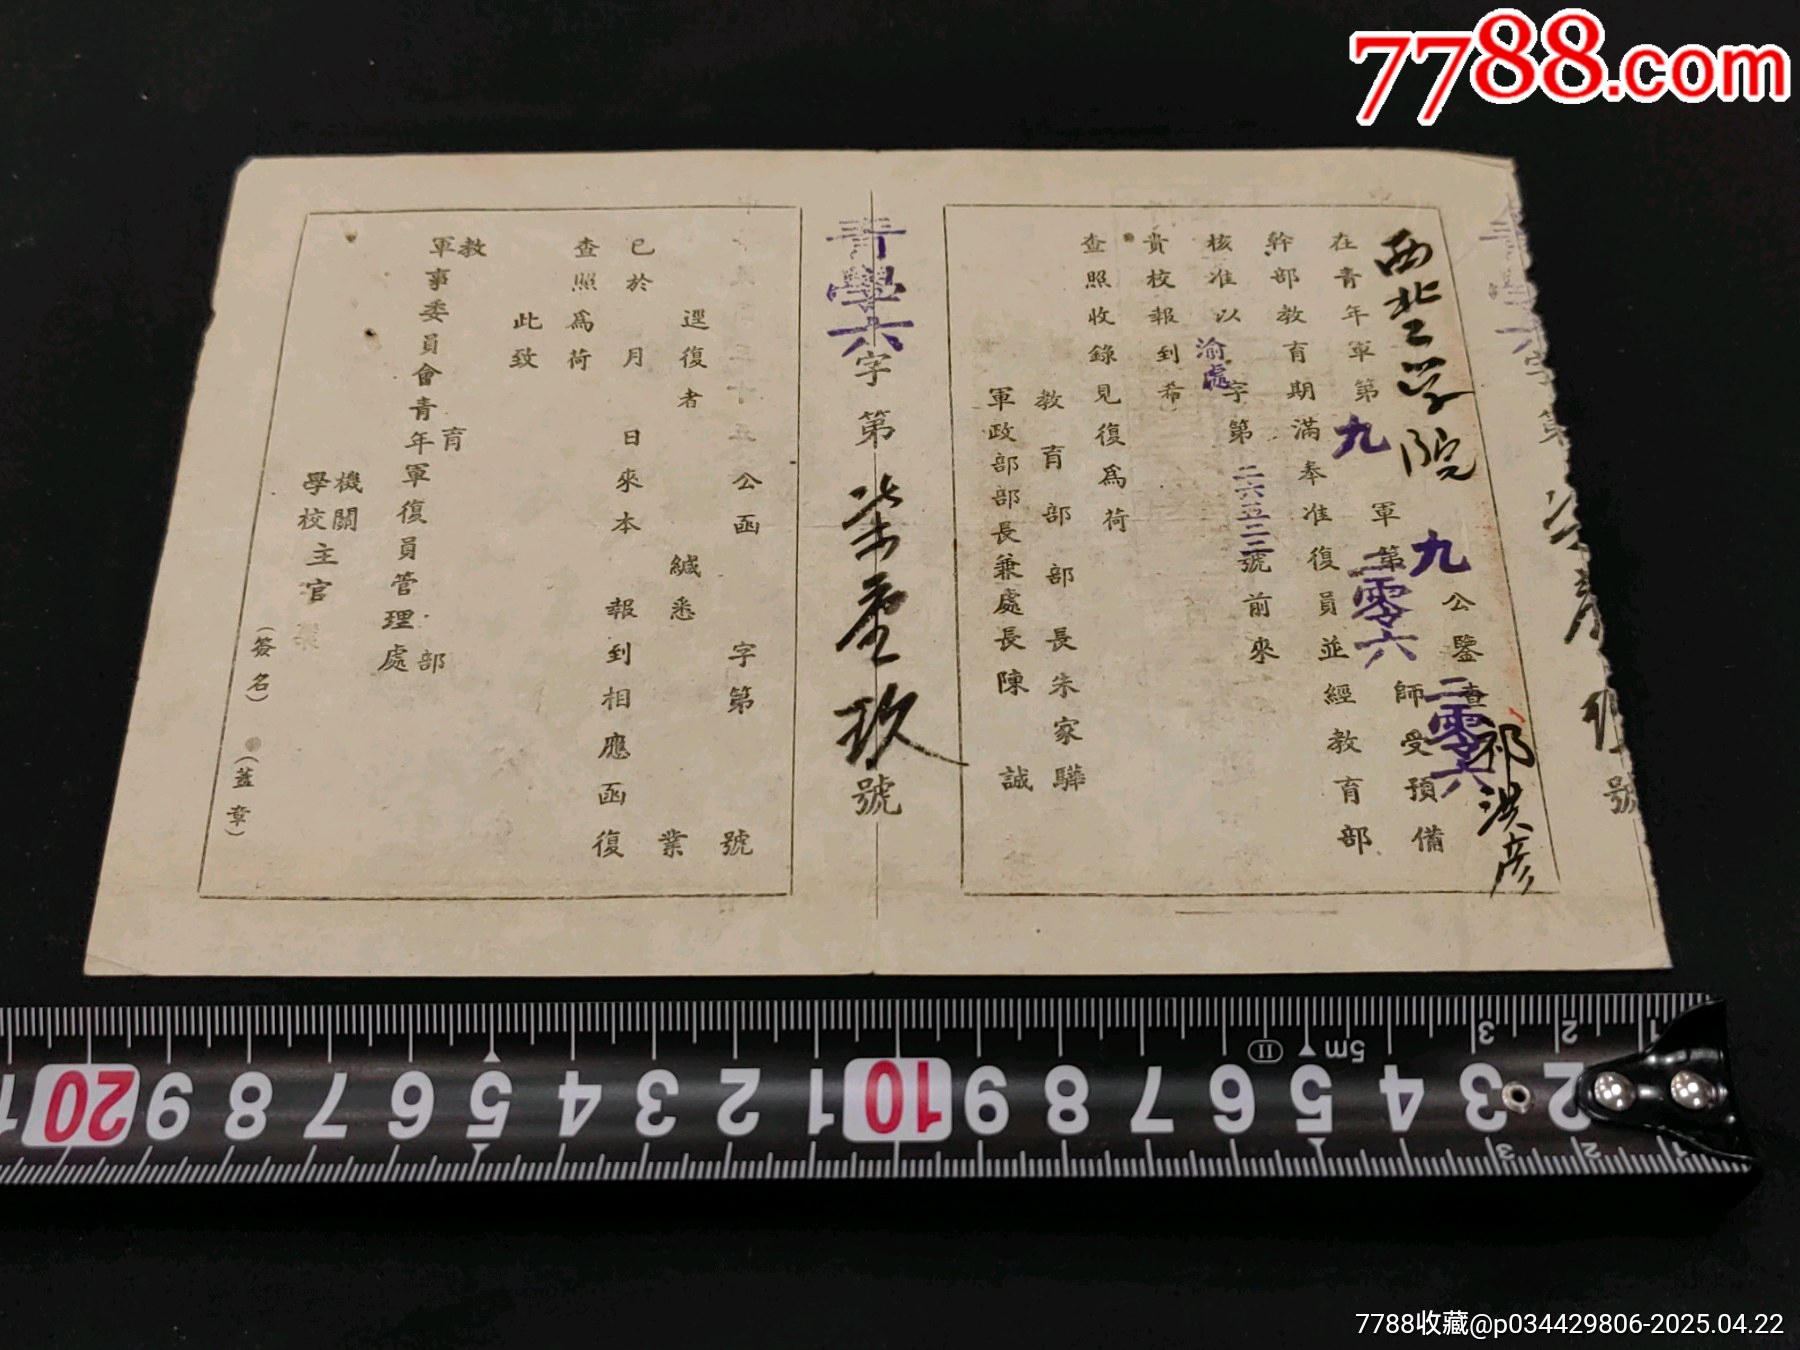 7788.com
西北工学院 公鑒查 祁洪彦
九 二零六
軍第 師受預備
在青年軍第 九 二零六
幹部教育期滿奉准復員並經教育部
核准以 渝處 字第 二六五二三 號前來
貴校報到希
查照收錄見復爲荷
教育部部長朱家驊
軍政部部長兼處長陳誠
青學六字第 柒壹玖 號
公函 字第 號
逕復者 緘悉 業
已於 月 日來本 報到相應函復
查照爲荷
此致
教育部
軍事委員會青年軍復員管理處
機關
學校主官
(簽名) (蓋章)
號
20 9 8 7 6 5 4 3 2 1 10 9 8 7 6 5 4 3 2
5m
7788收藏@p034429806-2025.04.22